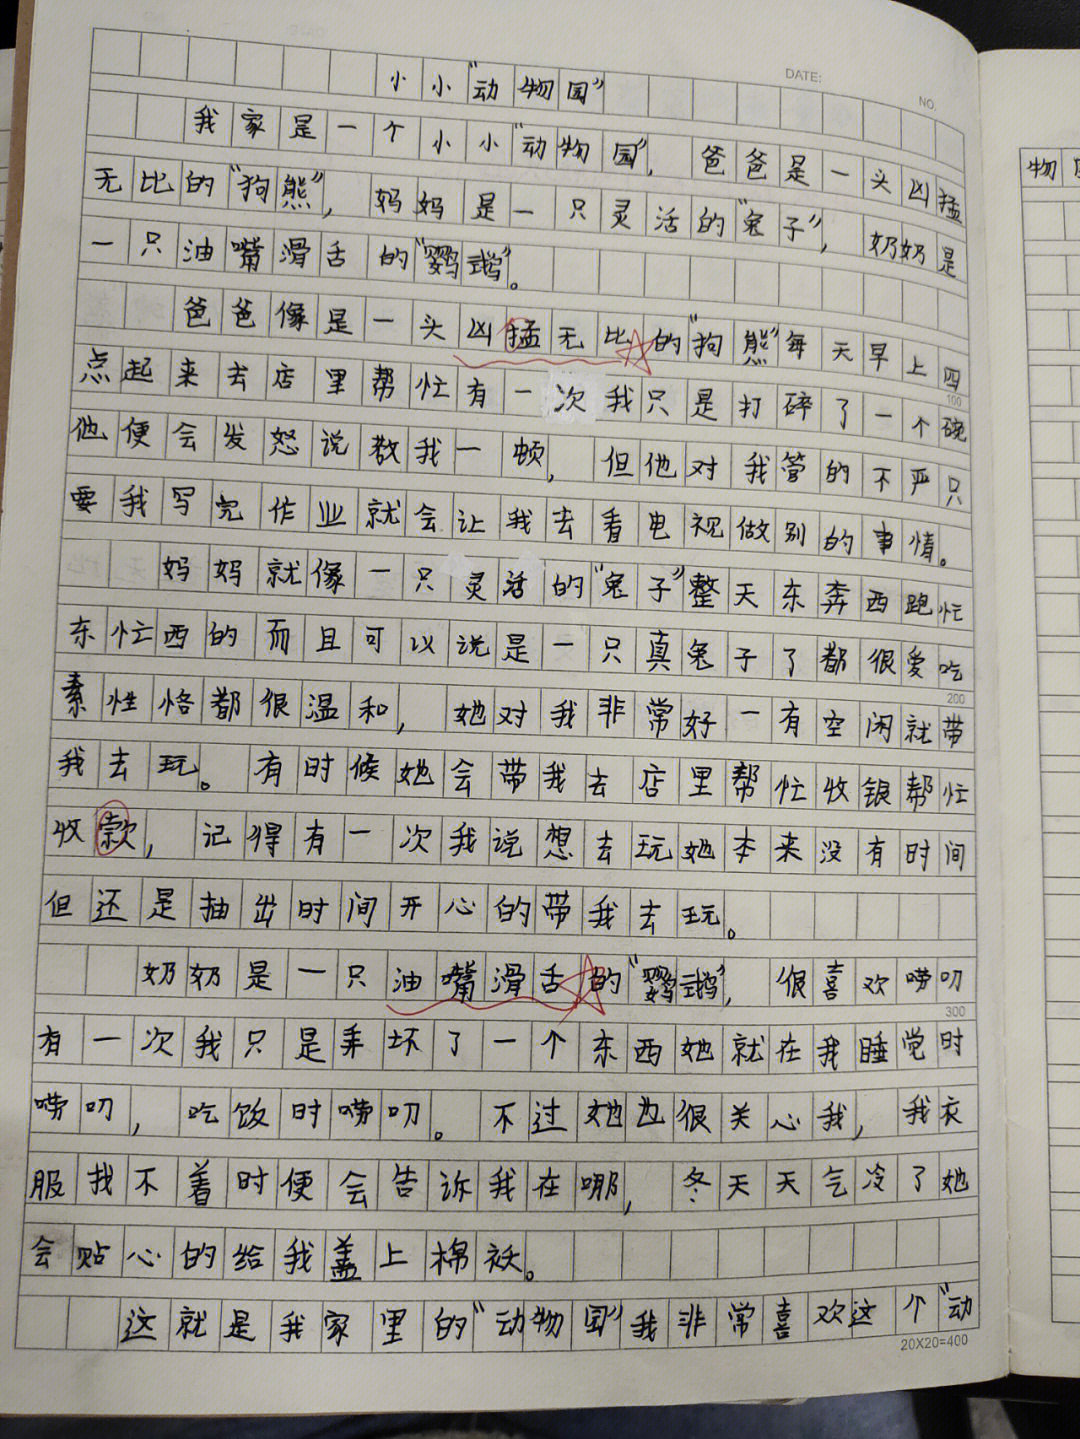 DATE:
NO.
小小“动物园”
我家是一个小小“动物园”，爸爸是一头凶猛
无比的“狗熊”，妈妈是一只灵活的“兔子”，奶奶是
一只油嘴滑舌的“鹦鹉”。
爸爸像是一头凶猛无比的“狗熊”每天早上四
100
点起来去店里帮忙有一次我只是打碎了一个碗
他便会发怒说教我一顿，但他对我管的不严只
要我写完作业就会让我去看电视做别的事情。
妈妈就像一只灵活的“兔子”整天东奔西跑忙
东忙西的而且可以说是一只真兔子了都很爱吃
200
素性恪都很温和，她对我非常好一有空闲就带
我去玩。有时候她会带我去店里帮忙收银帮忙
收款，记得有一次我说想去玩她本来没有时间
但还是抽出时间开心的带我去玩。
奶奶是一只油嘴滑舌的“鹦鹉”，很喜欢唠叨
300
有一次我只是弄坏了一个东西她就在我睡觉时
唠叨，吃饭时唠叨。不过她也很关心我，我衣
服找不着时便会告诉我在哪，冬天天气冷了她
会贴心的给我盖上棉袄。
这就是我家里的“动物园”我非常喜欢这个“动
20X20=400
物